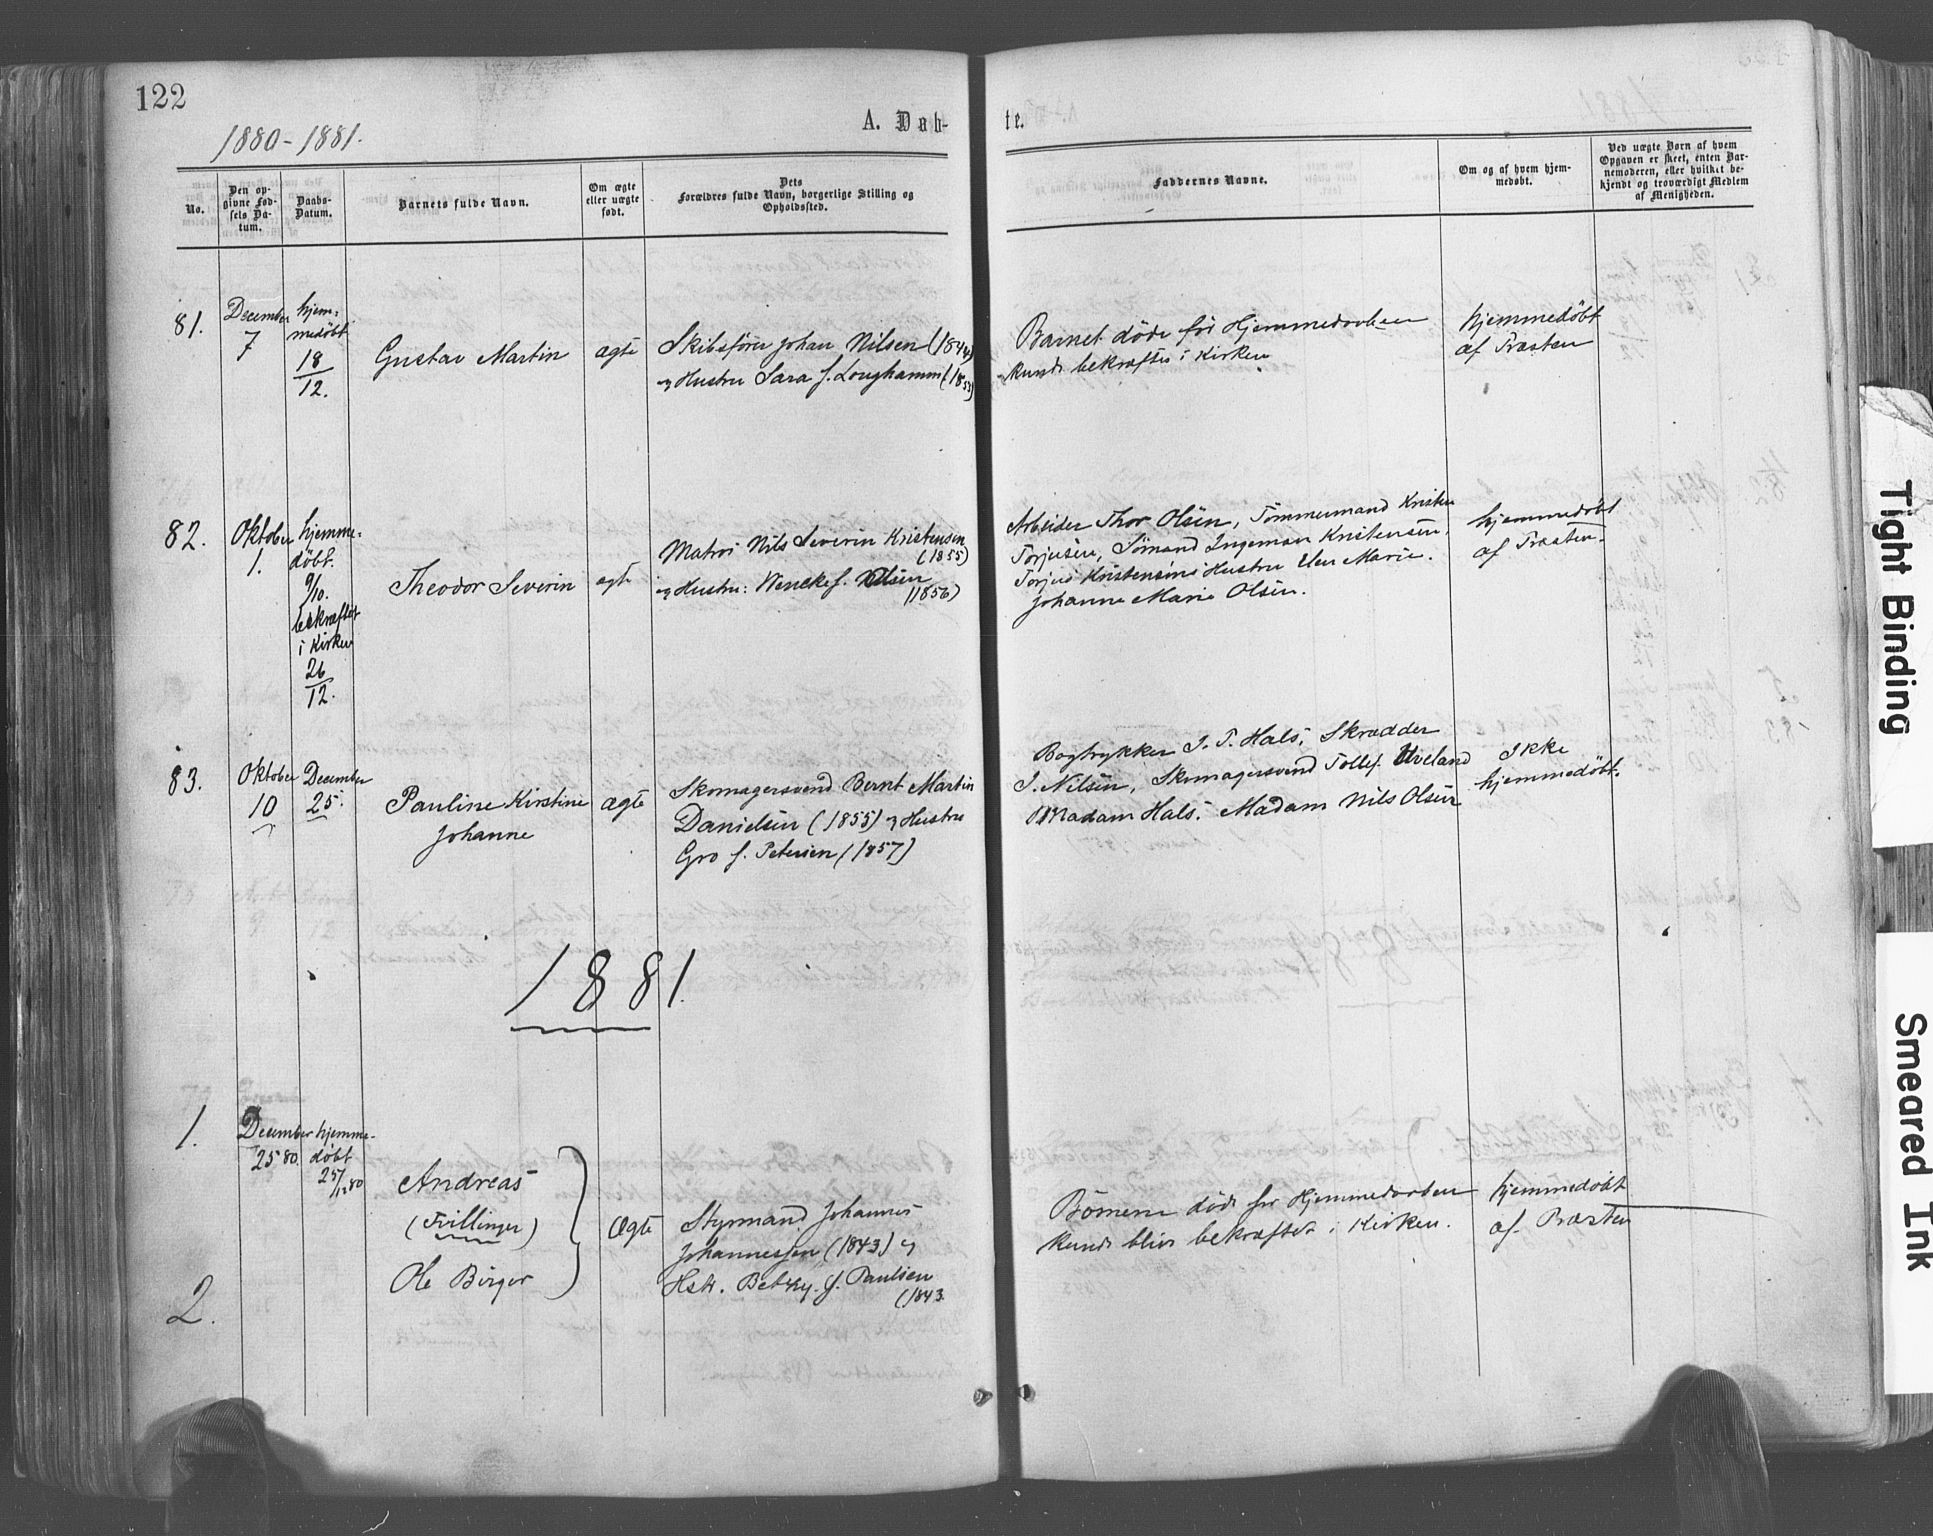 122
1880-1881.
A. Døb-
te.
No.
Den op-
givne Fød-
sels Da-
tum.
Daabs-
Datum.
Barnets fulde Navn.
Om ægte
eller uægte
født.
Dets
Forældres fulde Navn, borgerlige Stilling og
Opholdssted.
Faddernes Navne.
Om og af hvem hjem-
medøbt.
Ved uægte Børn af hvem
Opgaven er skeet, enten Bar-
nemoderen, eller hvilket be-
kjendt og troværdigt Medlem
af Menigheden.
81.
December
7
hjem-
medøbt
18
12.
Gustav Martin
ægte
Skibsfører Johan Nilsen (1844)
og Hustru Sara f. (1853)
Barnet døde før Hjemmedaaben
kunde bekræftes i Kirken
hjemmedøbt
af Præsten
82.
Oktober
1.
hjemme-
døbt.
9/10.
bekræftet
i Kirken
26
12.
Theodor Severin
ægte
Matros Nils Severin Kristensen
(1855)
og Hustru: Wencke f. Olsen
(1856)
Arbeider Thor Olsen, Tømmermand Kristen
Torjusen, Sømand Ingeman Kristensen,
Torjus Kristensens Hustru Elen Marie.
Johanne Marie Olsen.
hjemmedøbt
af Præsten.
83.
Oktober
10
December
25.
Pauline Kirstine
Johanne
ægte
Skomagersvend Bernt Martin
Danielsen (1855) og Hustru
Gro f. Petersen (1857)
Bogtrykker J. T. Hals, Skrædder
J. Nilsen, Skomagersvend Tollef Uveland
Madam Hals. Madam Nils Olsen
Ikke
hjemmedøbt.
1881.
1.
December
25 80.
hjemme-
døbt
25/12 80
Andreas
(Tvillinger)
Ole Birger
2.
Ægte
Styrmand Johannes
Johannessen (1843) og
Hstr. Betzy f. Paulsen
(1843
Børnene døde før Hjemmedaaben
kunde blive bekræftet i Kirken.
hjemmedøbt
af Præsten
Tight Binding
Smeared Ink